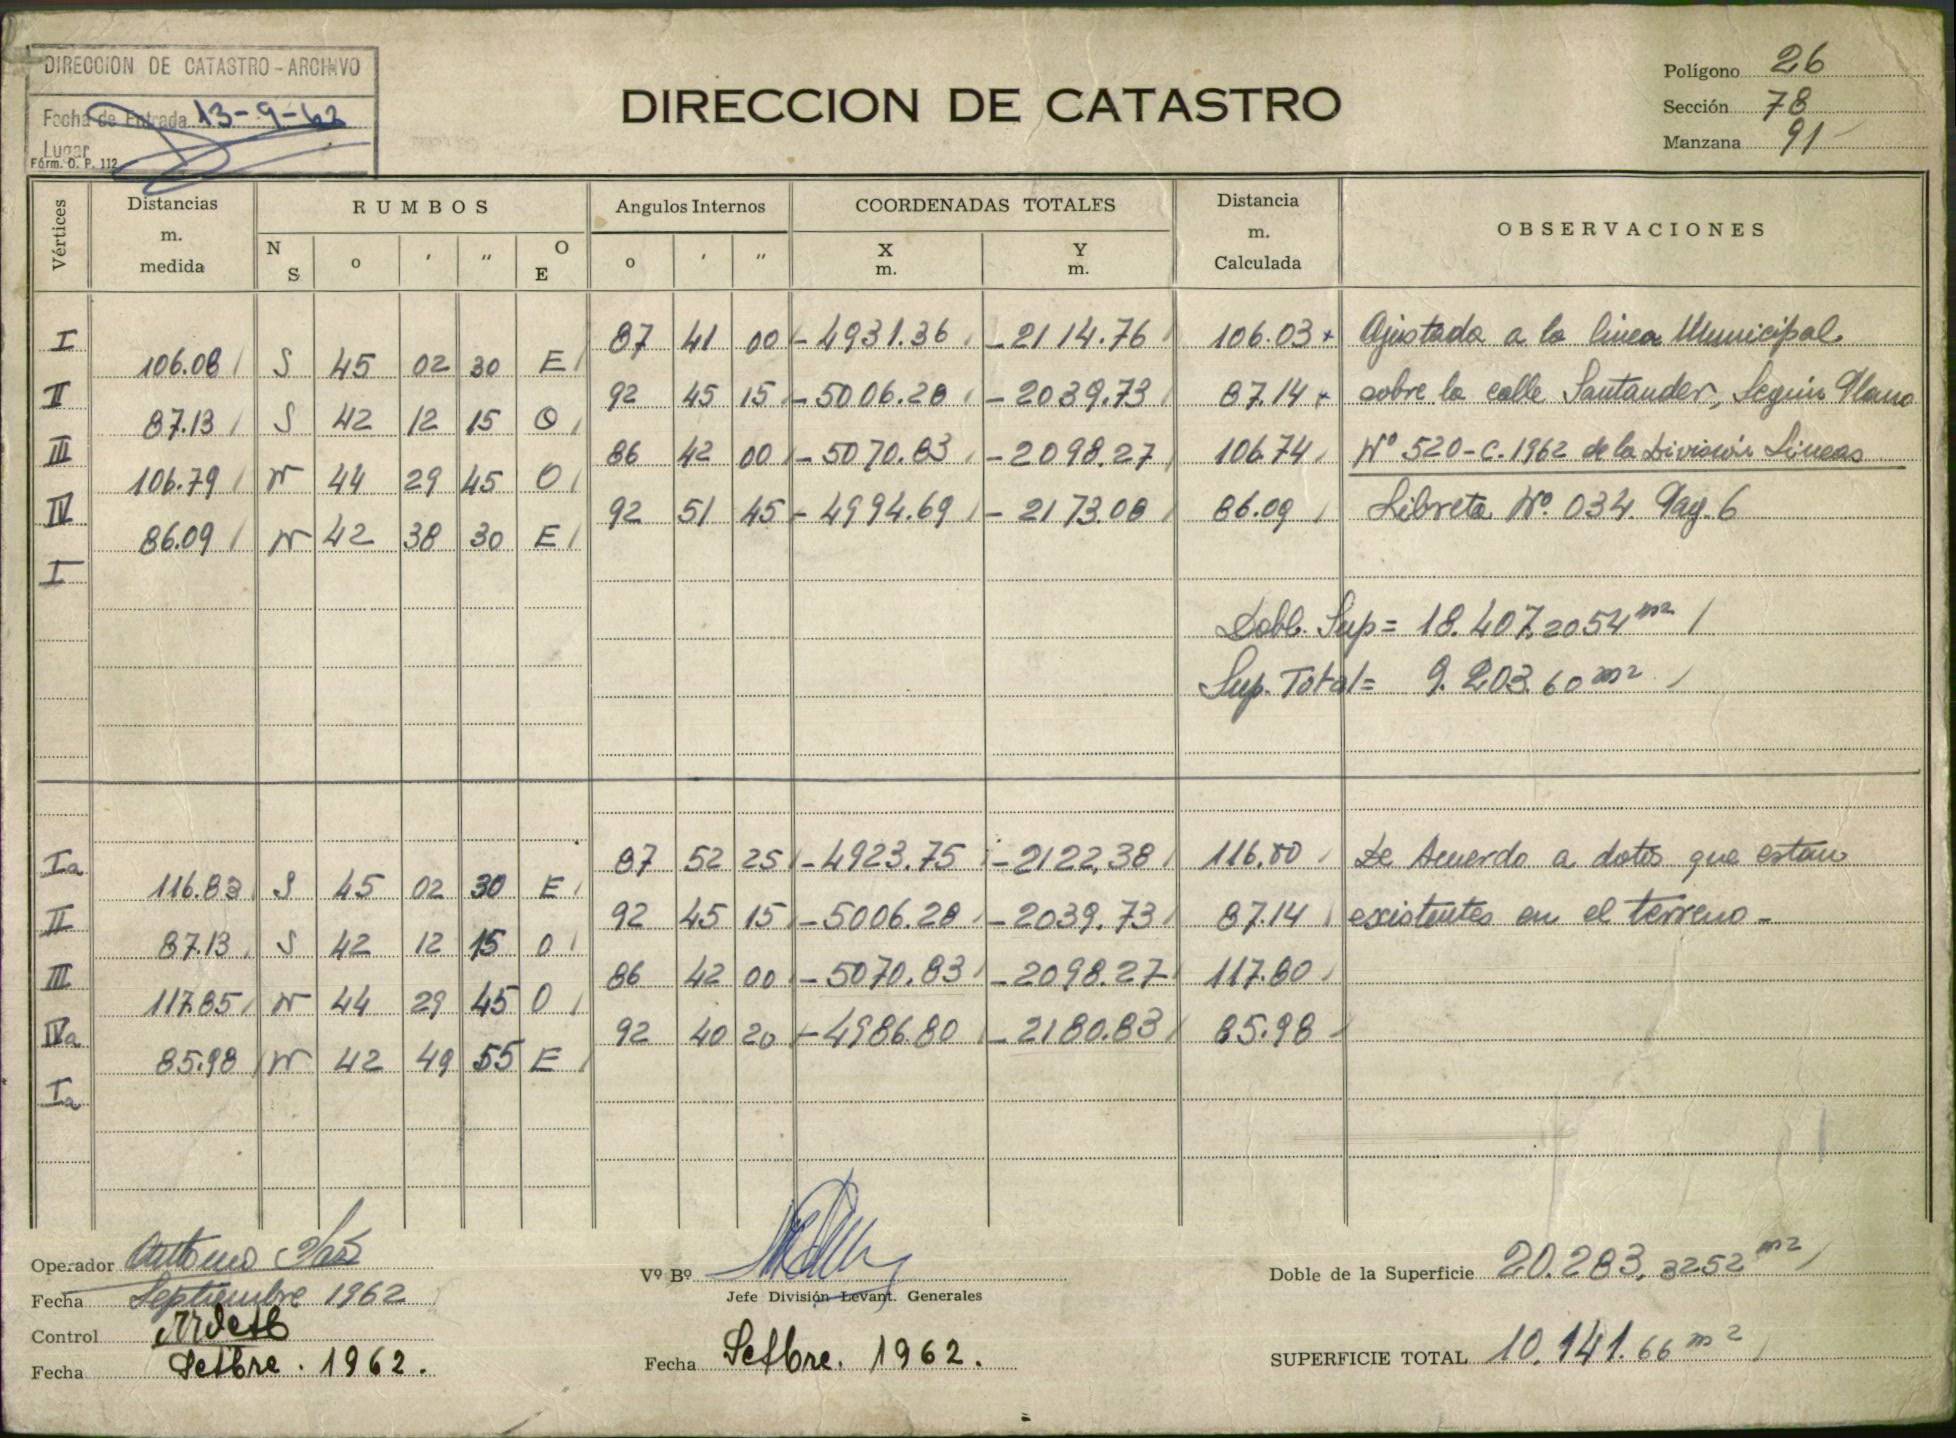 DIRECCION DE CATASTRO - ARCHIVO
Fecha de Entrada 13-9-62
Lugar
Fórm. O. P. 112
DIRECCION DE CATASTRO
Polígono 26
Sección 78
Manzana 91
Vértices
Distancias m. medida
RUMBOS
Angulos Internos
COORDENADAS TOTALES
Distancia m. Calculada
OBSERVACIONES
N S o ' " O E
o ' "
X m.
Y m.
I 87 41 00 -4931.36 -2114.76 106.03 Ajustada a la linea Municipal
106.08 S 45 02 30 E
II 92 45 15 -5006.28 -2039.73 87.14 sobre la calle Santander, Según Plano
87.13 S 42 12 15 O
III 86 42 00 -5070.83 -2098.27 106.74 Nº 520-C.1962 de la División Lineas
106.79 N 44 29 45 O
IV 92 51 45 -4994.69 -2173.08 86.09 Libreta Nº. 034. Pag. 6
86.09 N 42 38 30 E
I
Dobl. Sup = 18.407.2054 m2
Sup. Total = 9.203.60 m2
Ia 87 52 25 -4923.75 -2122,38 116.80 De Acuerdo a datos que estan
116.83 S 45 02 30 E
II 92 45 15 -5006.28 -2039.73 87.14 existentes en el terreno -
87.13 S 42 12 15 O
III 86 42 00 -5070.83 -2098.27 117.80
117.85 N 44 29 45 O
IVa 92 40 20 -4986.80 -2180.83 85.98
85.98 N 42 49 55 E
Ia
Operador Antonio
Fecha Septiembre 1962
Control
Fecha Setbre. 1962.
Vº Bº
Jefe División Levant. Generales
Fecha Setbre. 1962.
Doble de la Superficie 20.283.3252 m2
SUPERFICIE TOTAL 10.141.66 m2